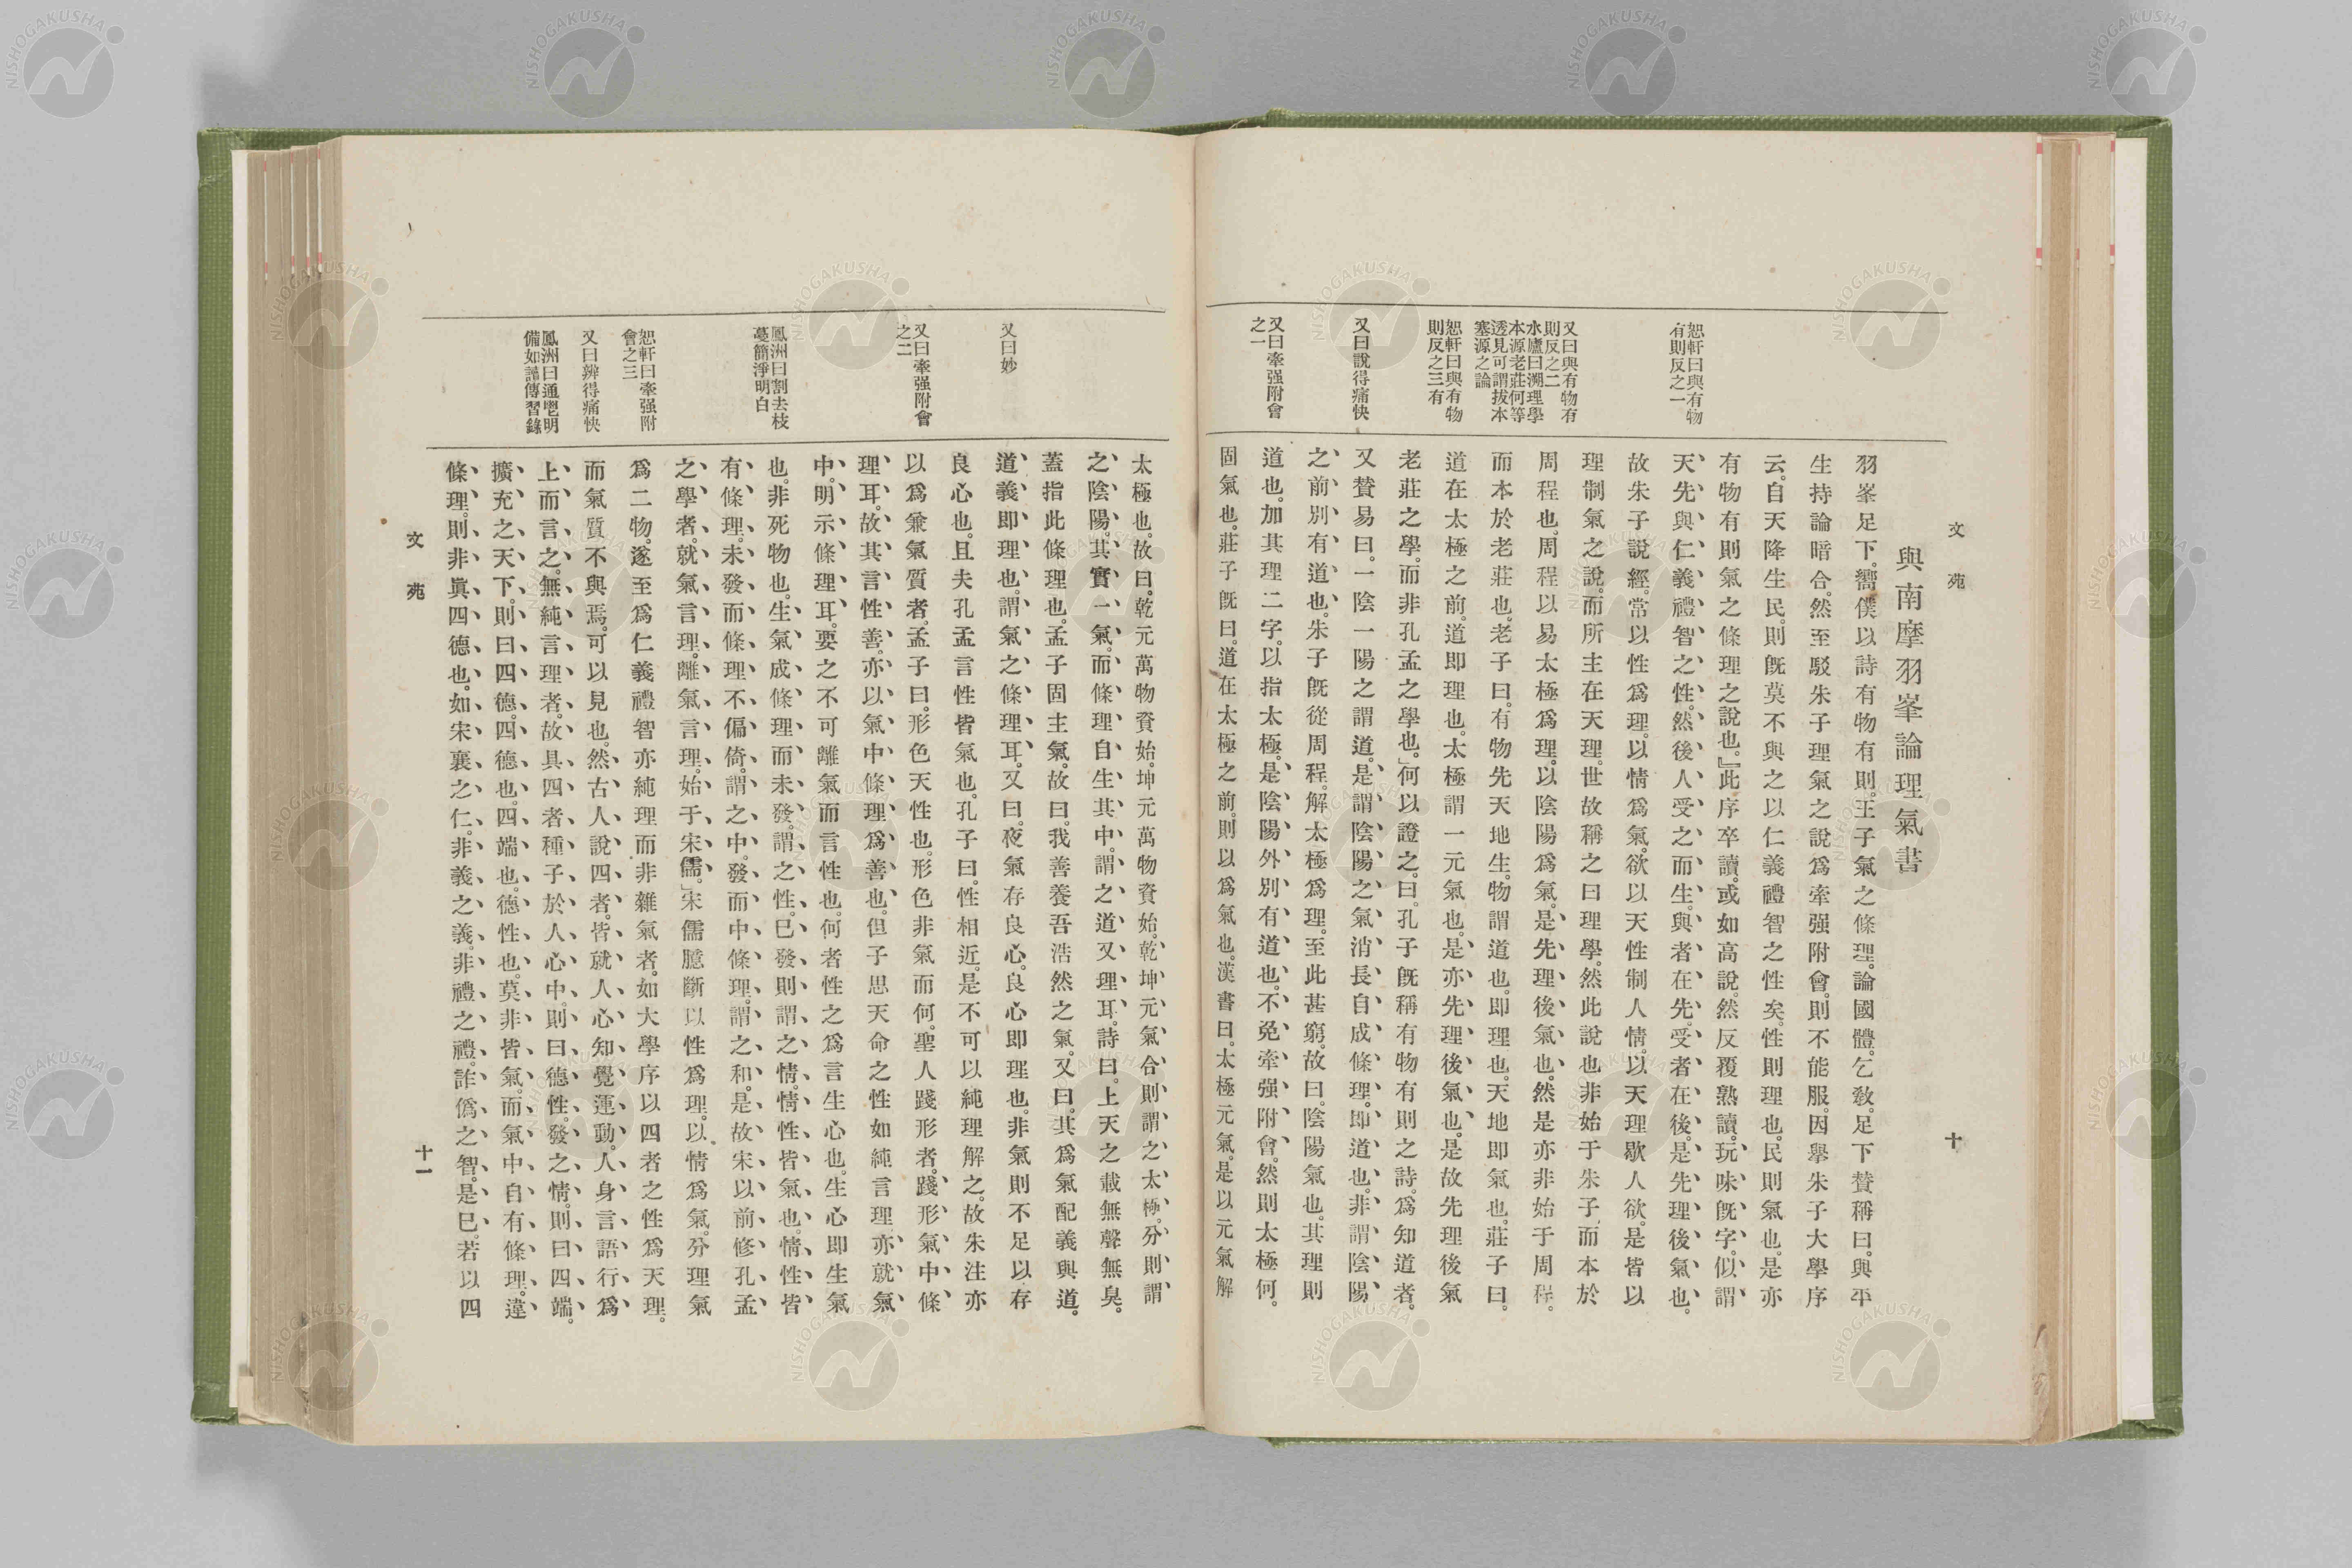 文苑
十
恕軒曰與有物
有則反之一
又曰與有物有
則反之二
水廬曰溯理學
本源老莊何等
透見可謂拔本
塞源之論
恕軒曰與有物
則反之三有
又曰說得痛快
又曰牽强附會
之一
與南摩羽峯論理氣書
羽峯足下。嚮僕以詩有物有則。王子氣之條理。論國體。乞敎。足下賛稱曰。與平
生持論暗合。然至駁朱子理氣之說爲牽强附會。則不能服。因擧朱子大學序
云。自天降生民。則旣莫不與之以仁義禮智之性矣。性則理也。民則氣也。是亦
有物有則氣之條理之說也。』此序卒讀。或如高說。然反覆熟讀。玩味旣字。似謂
天先與仁義禮智之性。然後人受之而生。與者在先。受者在後。是先理後氣也。
故朱子說經。常以性爲理。以情爲氣。欲以天性制人情。以天理歇人欲。是皆以
理制氣之說。而所主在天理。世故稱之曰理學。然此說也非始于朱子。而本於
周程也。周程以易太極爲理。以陰陽爲氣。是先理後氣也。然是亦非始于周程。
而本於老莊也。老子曰。有物先天地生。物謂道也。卽理也。天地卽氣也。莊子曰。
道在太極之前。道卽理也。太極謂一元氣也。是亦先理後氣也。是故先理後氣
老莊之學。而非孔孟之學也。』何以證之。曰。孔子旣稱有物有則之詩。爲知道者。
又賛易曰。一陰一陽之謂道。是謂陰陽之氣消長自成條理。卽道也。非謂陰陽
之前別有道也。朱子旣從周程。解太極爲理。至此甚窮。故曰。陰陽氣也。其理則
道也。加其理二字。以指太極。是陰陽外別有道也。不免牽强附會。然則太極何。
固氣也。莊子旣曰。道在太極之前。則以爲氣也。漢書曰。太極元氣。是以元氣解
又曰妙
又曰牽强附會
之二
鳳洲曰割去枝
蔓簡淨明白
恕軒曰牽强附
會之三
又曰辨得痛快
鳳洲曰通鬯明
備如讀傳習錄
太極也。故曰。乾元萬物資始。坤元萬物資始。乾坤元氣合則謂之太極。分則謂
之陰陽。其實一氣。而條理自生其中。謂之道又理耳。詩曰。上天之載無聲無臭。
蓋指此條理也。孟子固主氣。故曰。我善養吾浩然之氣。又曰。其爲氣配義與道。
道義卽理也。謂氣之條理耳。又曰。夜氣存良心。良心卽理也。非氣則不足以存
良心也。且夫孔孟言性皆氣也。孔子曰。性相近。是不可以純理解之。故朱注亦
以爲兼氣質者。孟子曰。形色天性也。形色非氣而何。聖人踐形者。踐形氣中條
理耳。故其言性善。亦以氣中條理爲善也。但子思天命之性如純言理。亦就氣
中。明示條理耳。要之不可離氣而言性也。何者性之爲言生心也。生心卽生氣
也。非死物也。生氣成條理而未發。謂之性。已發則謂之情。情性皆氣也。情性皆
有條理。未發而條理不偏倚。謂之中。發而中條理。謂之和。是故宋以前修孔孟
之學者。就氣言理。離氣言理。始于宋儒。』宋儒臆斷以性爲理。以情爲氣。分理氣
爲二物。遂至爲仁義禮智亦純理而非雜氣者。如大學序以四者之性爲天理。
而氣質不與焉。可以見也。然古人說四者。皆就人心知覺運動。人身言語行爲
上而言之。無純言理者。故具四者種子於人心中。則曰德性。發之情。則曰四端。
擴充之天下。則曰四德。四德也。四端也。德性也。莫非皆氣。而氣中自有條理。違
條理。則非眞四德也。如宋襄之仁。非義之義。非禮之禮。詐僞之智。是巳。若以四
文苑
十一